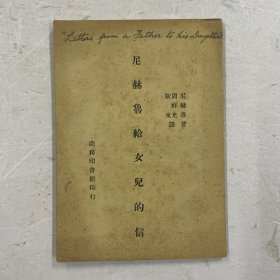 "Letters from a Father to his Daughter"
尼赫魯著
周祥光
斯東 譯
尼赫魯給女兒的信
商務印書館印行